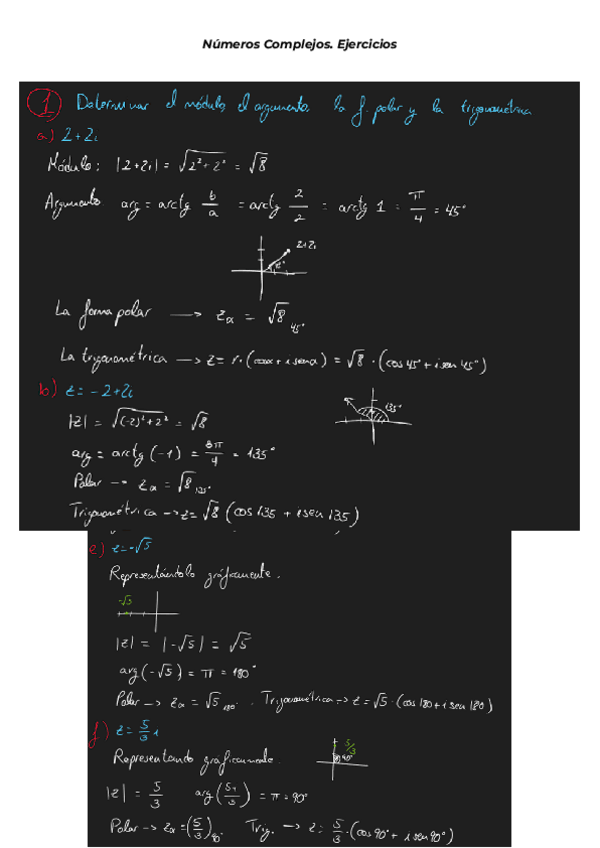 Números Complejos. Ejercicios
1 Determinar el módulo, el argumento, la f. polar y la trigonométrica
a) 2+2i
Módulo: |2+2i| = √(2²+2²) = √8
Argumento arg = arctg b/a = arctg 2/2 = arctg 1 = π/4 = 45°
2+2i
45°
La forma polar → zα = √8 45°
La trigonométrica → z = r·(cosα + i senα) = √8 · (cos 45° + i sen 45°)
b) z = -2+2i
|z| = √((-2)²+2²) = √8
135°
arg = arctg (-1) = 3π/4 = 135°
Polar → zα = √8 135°
Trigonométrica → z = √8 (cos 135 + i sen 135)
e) z = -√5
Representándolo gráficamente.
-√5
|z| = |-√5| = √5
arg(-√5) = π = 180°
Polar → zα = √5 180° . Trigonométrica → z = √5 · (cos 180 + i sen 180)
f) z = 5/3 i
Representando gráficamente.
5/3
90°
|z| = 5/3 arg(5i/3) = π = 90°
Polar → zα = (5/3) 90° Trig. → z = 5/3 · (cos 90° + i sen 90°)